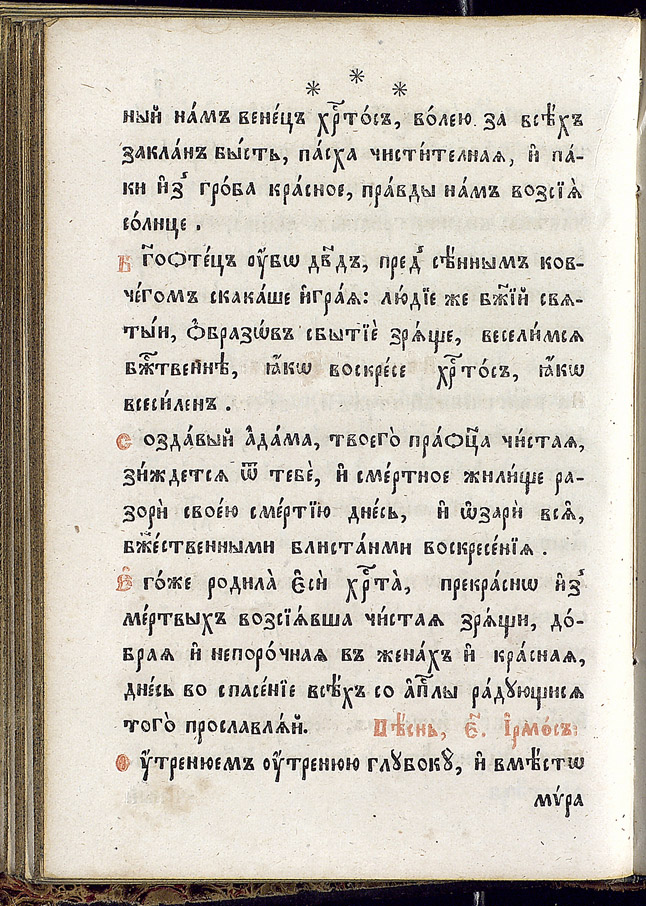 * * *
ный на́мъ вене́цъ хрⷭ҇то́съ, во́лею за всѣ́хъ
закла́нъ бы́сть, па́сха чисти́телнаѧ, и҆ па́-
ки и҆з̾ гро́ба кра́сное, пра́вды на́мъ возсїѧ̀
со́лнце .
Бг҃оѻте́цъ ᲂу҆́бѡ дв҃дъ, пред̾ сѣ́ннымъ ков-
че́гомъ скака́ше и҆гра́ѧ: лю́дїе же бж҃їй свѧ-
ты́и, ѻ҆́бразѡвъ сбытїѐ зрѧ́ще, весели́мсѧ
бж҃́твеннѣ, ꙗ҆́кѡ воскре́се хрⷭ҇то́съ, ꙗ҆́кѡ
всеси́ленъ .
Созда́вый а҆да́ма, твоего̀ пра́ѻц҃а чи́стаѧ,
зи́ждетсѧ ѿ тебѐ, и҆ сме́ртное жили́ще ра-
зорѝ свое́ю сме́ртїю дне́сь, и҆ ѡ҆зарѝ всѧ̑,
бж҃е́ственными блиста́нми воскресе́нїѧ .
Е҆го́же родила̀ є҆сѝ хрⷭ҇та̀, прекра́снѡ и҆з̾
ме́ртвыхъ возсїѧ́вша чи́стаѧ зрѧ́щи, до́-
браѧ и҆ непоро́чнаѧ въ жена́хъ и҆ кра́снаѧ,
дне́сь во спасе́нїе всѣ́хъ со а҆пⷭ҇лы ра́дꙋющисѧ
того̀ прославлѧ́й. Пѣ́снь, є҃. І҆рмо́съ:
Оу҆́тренюемъ ᲂу҆́тренюю глꙋбокꙋ̀, и҆ вмѣ́стѡ
мѵ́ра